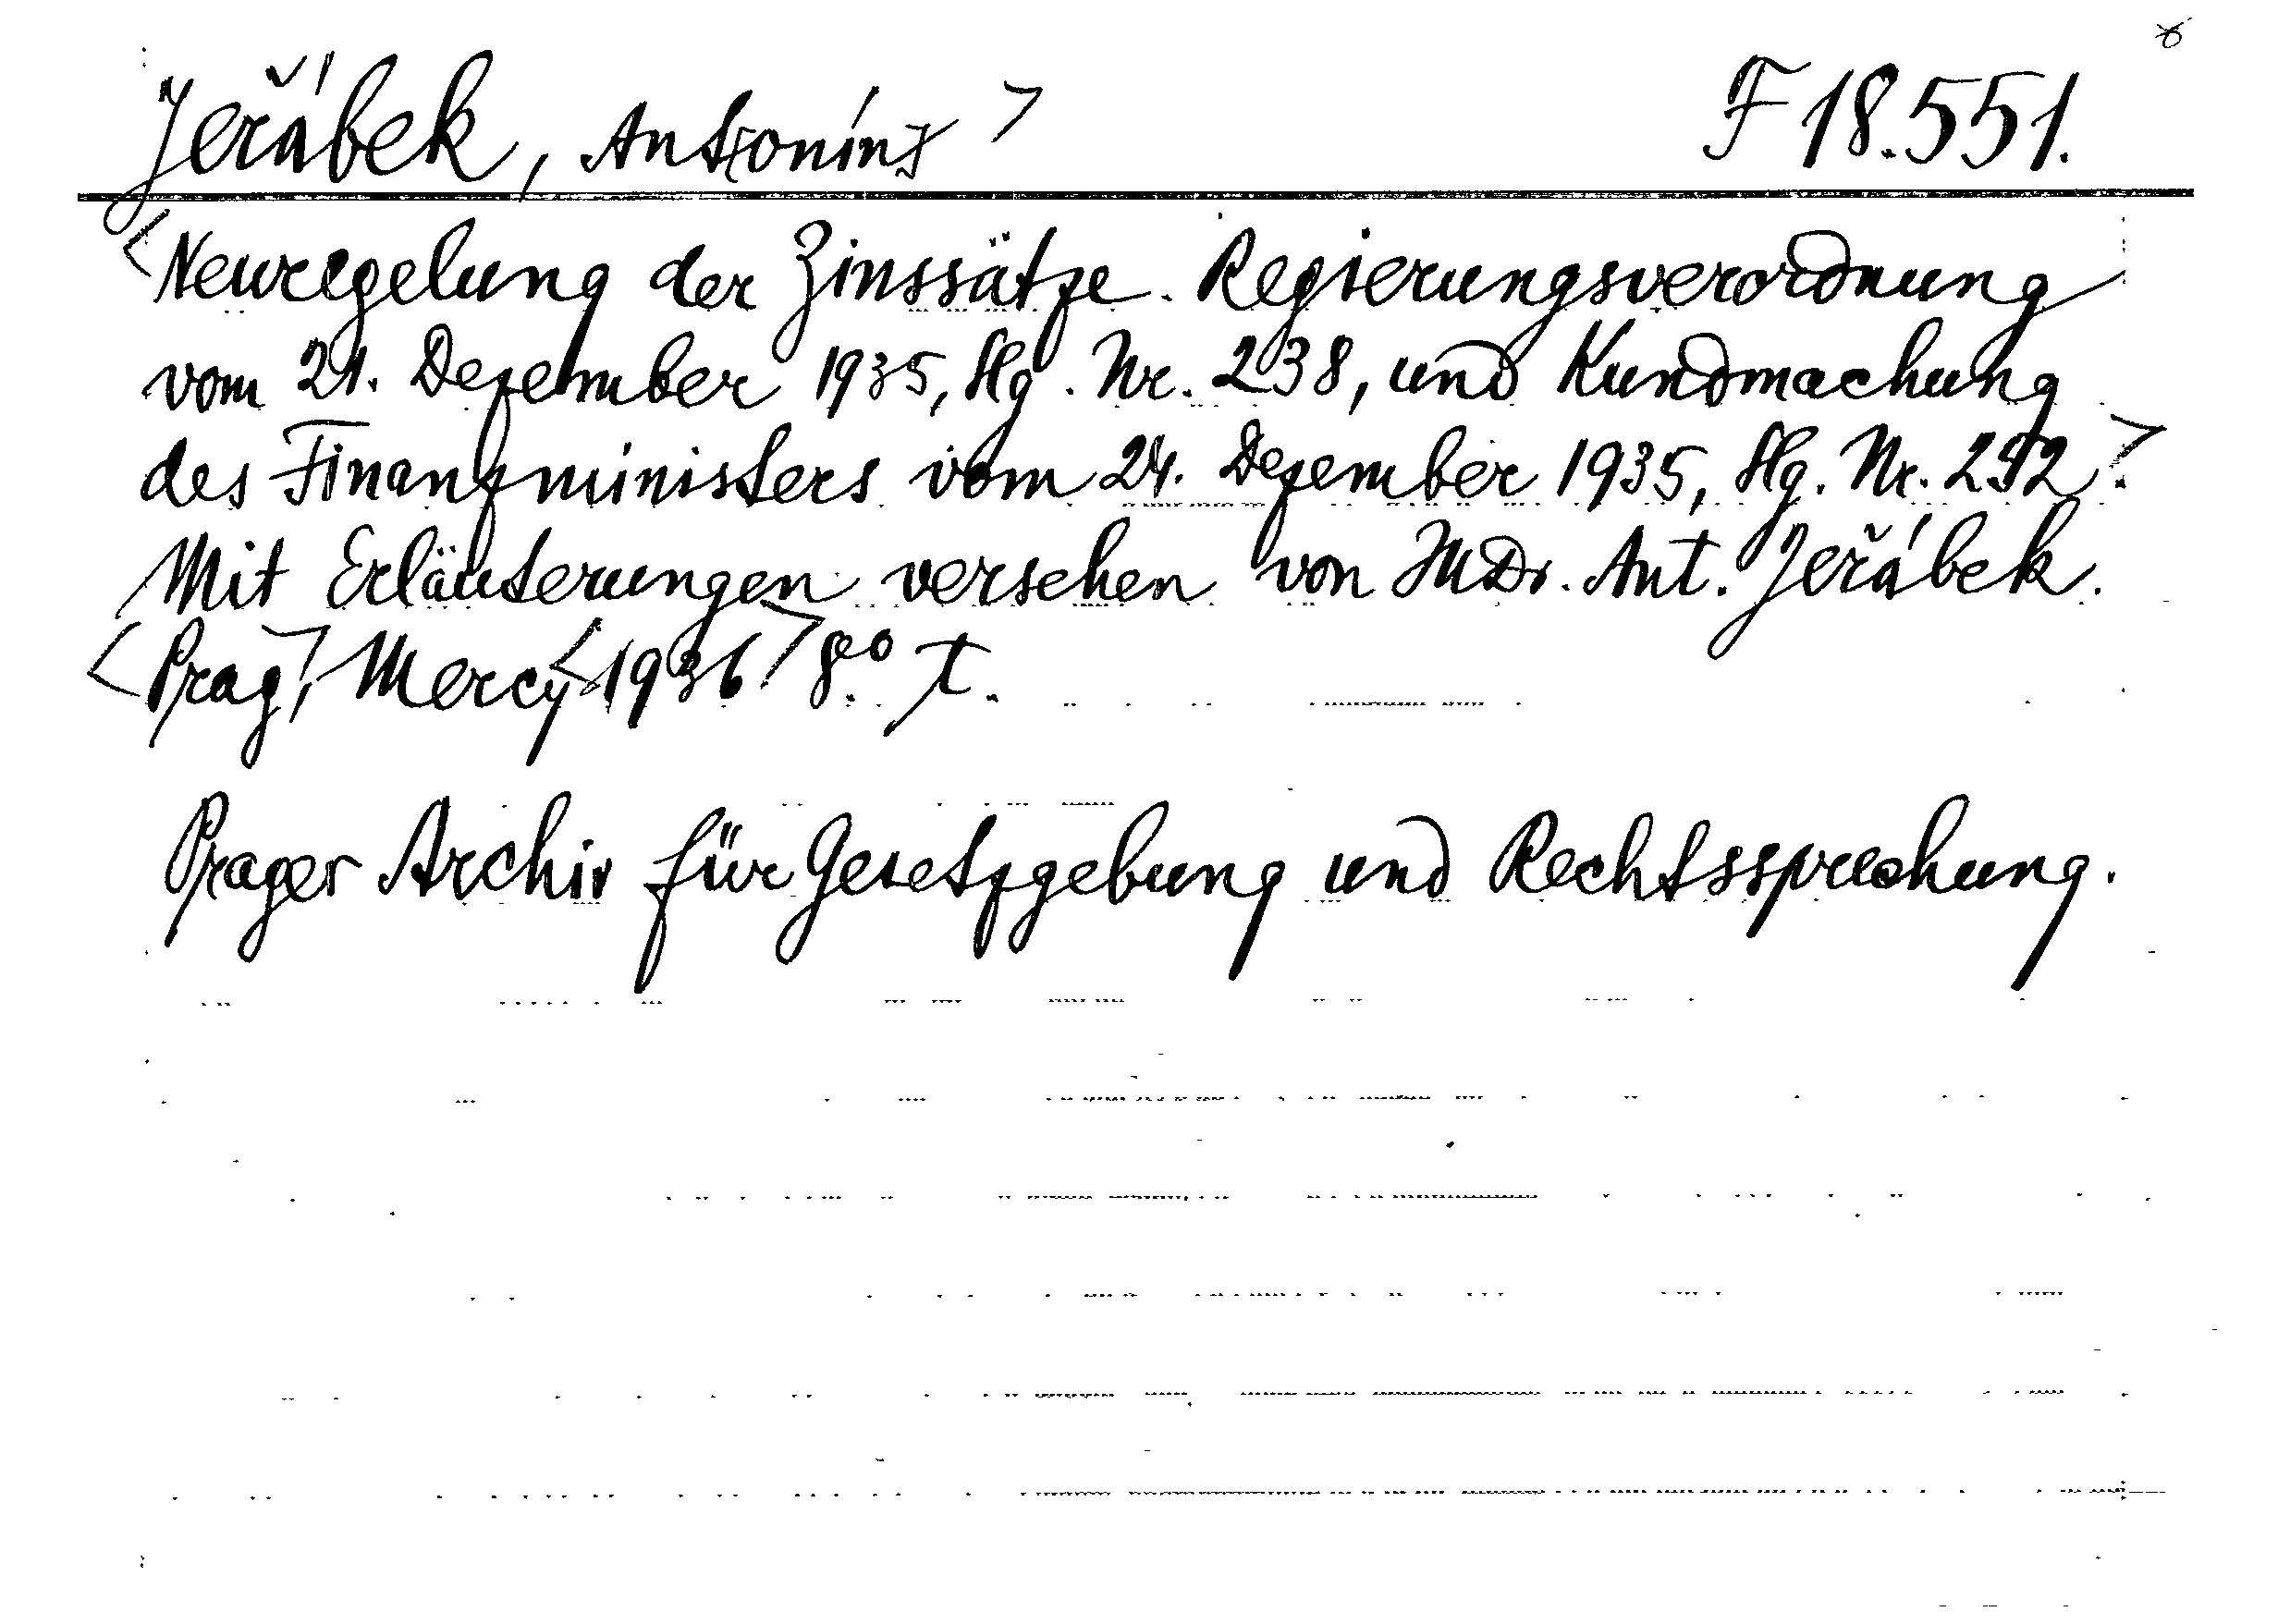 Jeřábek, Ant[onín] >
F 18.551.
<Neuregelung der Zinssätze. Regierungsverordnung
vom 21. Dezember 1935, Slg. Nr. 238, und Kundmachung
des Finanzministers vom 24. Dezember 1935, Slg. Nr. 242>.
Mit Erläuterungen versehen von JUDr. Ant. Jeřábek.
<Prag>, Mercy <1936> 8° T.
Prager Archiv für Gesetzgebung und Rechtssprechung.